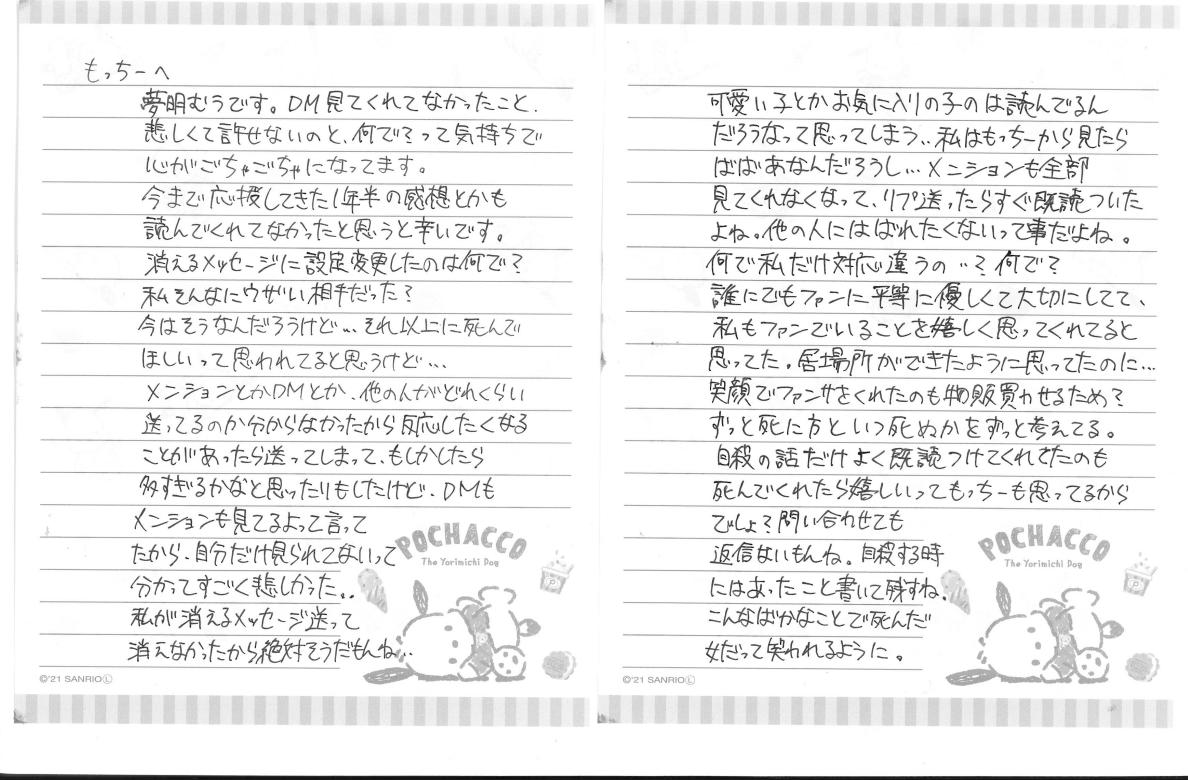 もっちーへ
夢明むうです。DM見てくれてなかったこと、
悲しくて許せないのと、何で？って気持ちで
心がごちゃごちゃになってます。
今まで応援してきた1年半の感想とかも
読んでくれてなかったと思うと辛いです。
消えるメッセージに設定変更したのは何で？
私そんなにウザい相手だった？
今はそうなんだろうけど…それ以上に死んで
ほしいって思われてると思うけど…
メンションとかDMとか、他の人がどれくらい
送ってるのか分からなかったから反応したくなる
ことがあったら送ってしまって、もしかしたら
多すぎるかなと思ったりもしたけど、DMも
メンションも見てるよって言って
たから、自分だけ見られてないって
分かってすごく悲しかった..
私が消えるメッセージ送って
消えなかったから絶対そうだもんね…
POCHACCO
The Yorimichi Dog
©'21 SANRIO Ⓛ
可愛い子とかお気に入りの子のは読んでるん
だろうなって思ってしまう..私はもっちーから見たら
ばばあなんだろうし…メンションも全部
見てくれなくなって、リプ送ったらすぐ既読ついた
よね。他の人にはばれたくないって事だよね。
何で私だけ対応違うの..？何で？
誰にでもファンに平等に優しくて大切にしてて、
私もファンでいることを嬉しく思ってくれてると
思ってた。居場所ができたように思ってたのに…
笑顔でファンサをくれたのも物販買わせるため？
ずっと死に方といつ死ぬかをずっと考えてる。
自殺の話だけよく既読つけてくれてたのも
死んでくれたら嬉しいってもっちーも思ってるから
でしょ？問い合わせても
返信ないもんね。自殺する時
にはあったこと書いて残すね。
こんなばかなことで死んだ
女だって笑われるように。
POCHACCO
The Yorimichi Dog
©'21 SANRIO Ⓛ